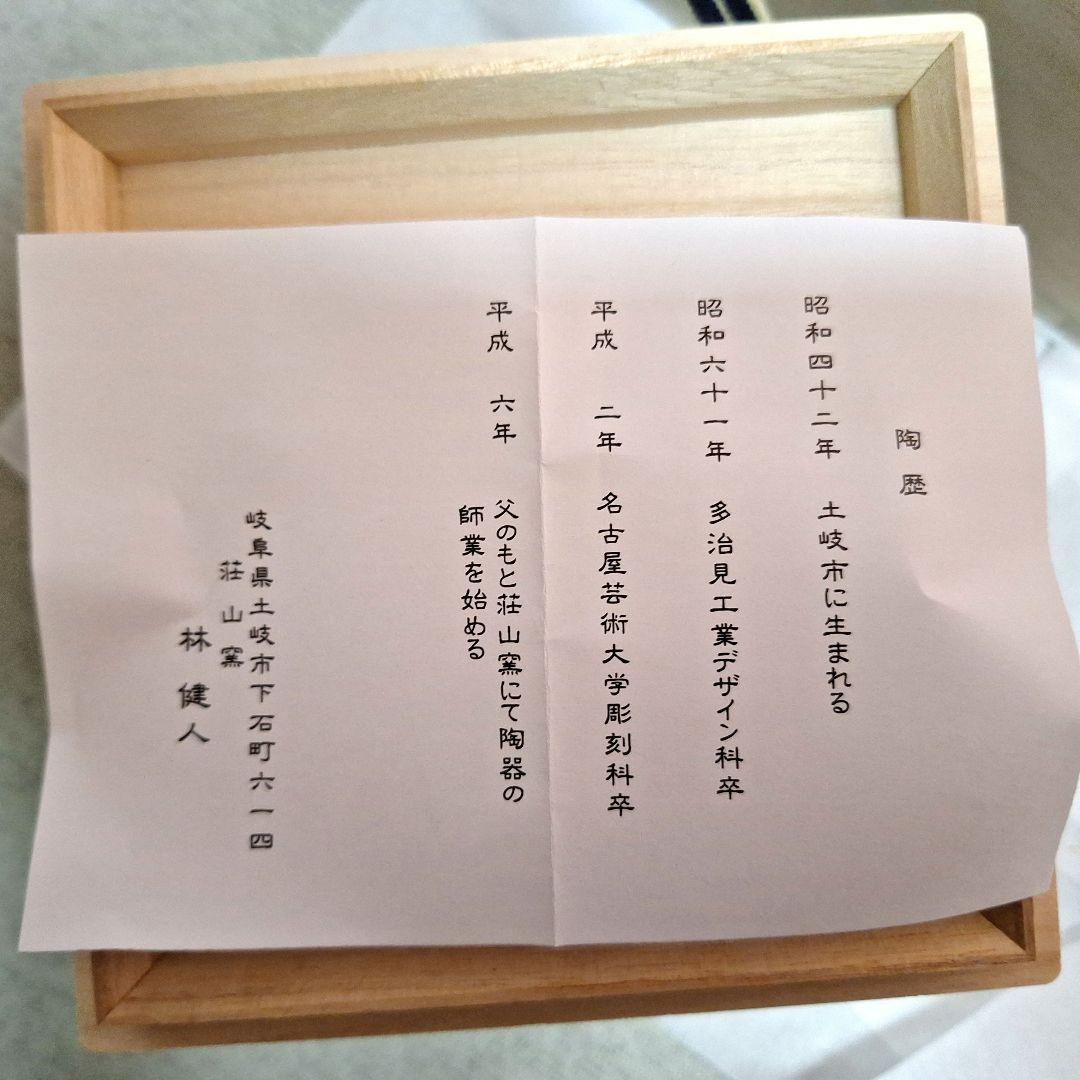 陶歴
昭和四十二年 土岐市に生まれる
昭和六十一年 多治見工業デザイン科卒
平成 二年 名古屋芸術大学彫刻科卒
平成 六年 父のもと荘山窯にて陶器の
師業を始める
岐阜県土岐市下石町六一四
荘山窯
林健人